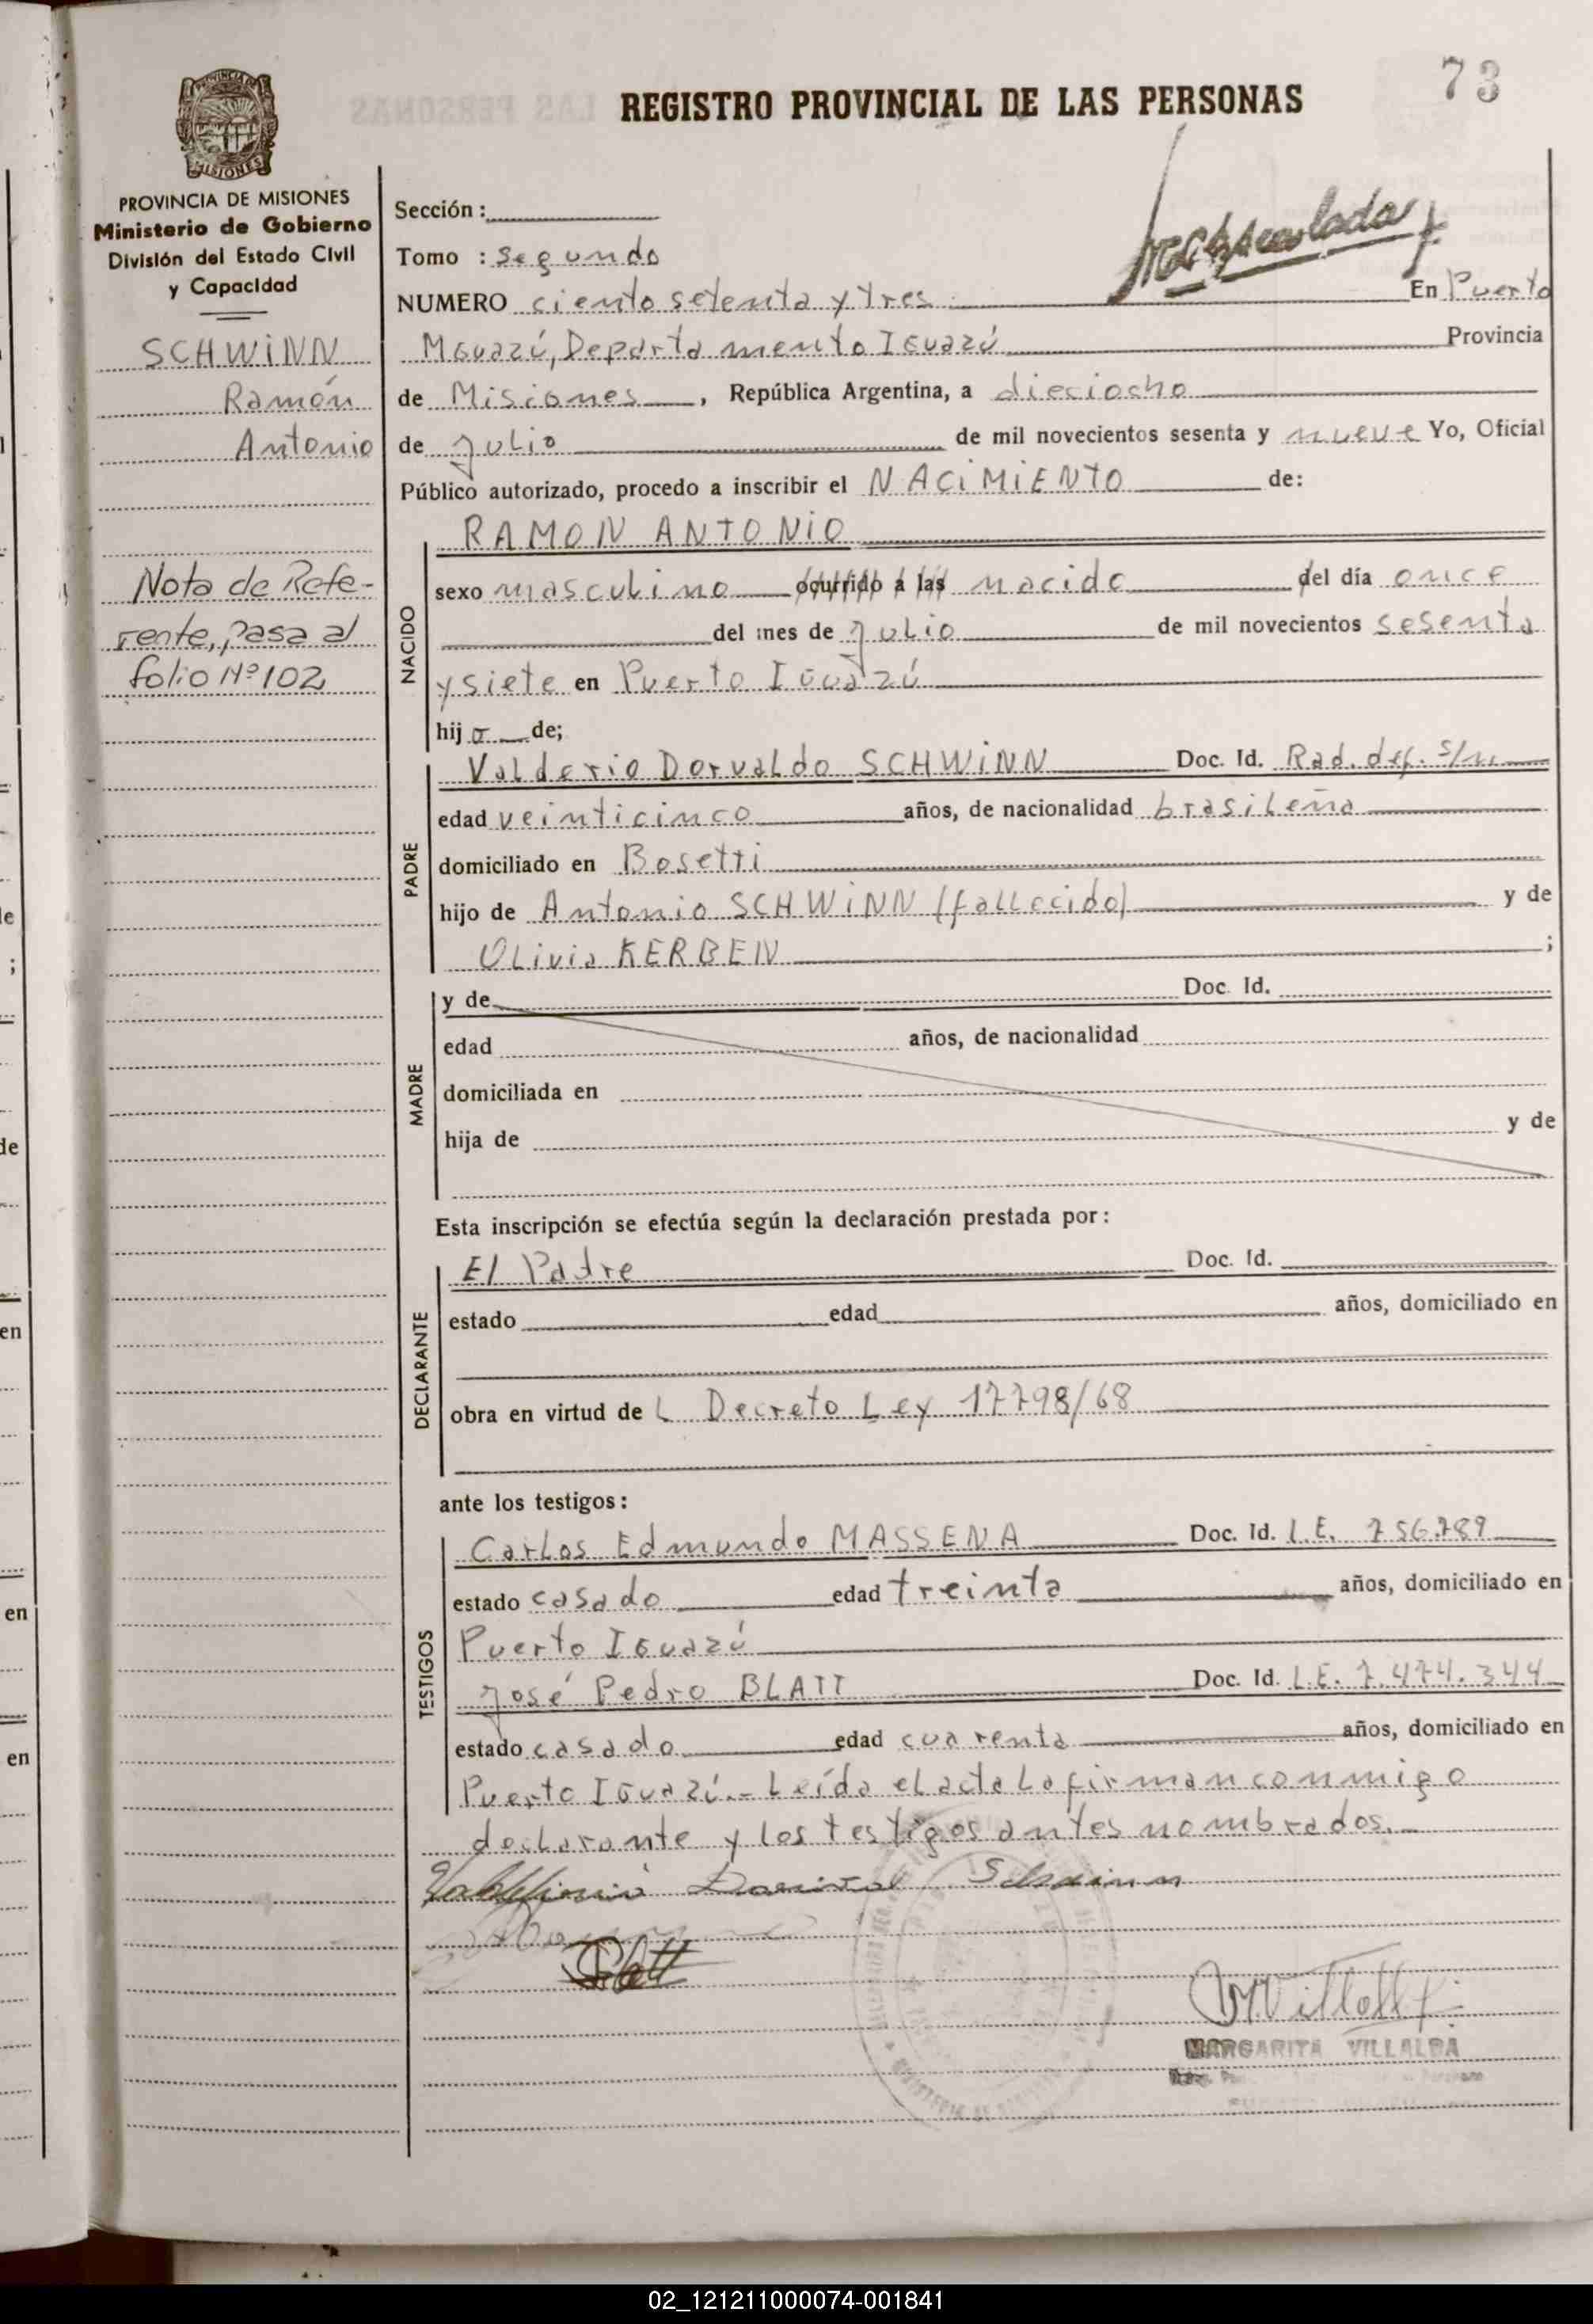 73
REGISTRO PROVINCIAL DE LAS PERSONAS
PROVINCIA DE MISIONES
Ministerio de Gobierno
División del Estado Civil
y Capacidad
SCHWINN
Ramón
Antonio
Nota de Refe-
rente, pasa al
folio Nº 102
Sección :
Tomo : Segundo
NUMERO ciento setenta y tres En Puerto
Iguazú, Departamento Iguazú Provincia
de Misiones, República Argentina, a dieciocho
de Julio de mil novecientos sesenta y nueve Yo, Oficial
Público autorizado, procedo a inscribir el NACIMIENTO de:
NACIDO
RAMON ANTONIO
sexo masculino ocurrido a las nacido del día once
del mes de Julio de mil novecientos sesenta
y siete en Puerto Iguazú
hijo de;
PADRE
Valderio Dorvaldo SCHWINN Doc. Id. Rad. def. s/n
edad veinticinco años, de nacionalidad brasileña
domiciliado en Bosetti
hijo de Antonio SCHWINN (fallecido) y de
Olivia KERBEN ;
MADRE
y de Doc. Id.
edad años, de nacionalidad
domiciliada en
hija de y de
Esta inscripción se efectúa según la declaración prestada por:
DECLARANTE
El Padre Doc. Id.
estado edad años, domiciliado en
obra en virtud de L Decreto Ley 17798/68
ante los testigos:
TESTIGOS
Carlos Edmundo MASSENA Doc. Id. L.E. 756.789
estado casado edad treinta años, domiciliado en
Puerto Iguazú
José Pedro BLATT Doc. Id. L.E. 7.474.344
estado casado edad cuarenta años, domiciliado en
Puerto Iguazú.- Leída el acta la firman conmigo
declarante y los testigos antes nombrados.-
Schwinn
Blatt
MVillalba
MARGARITA VILLALBA
02_121211000074-001841